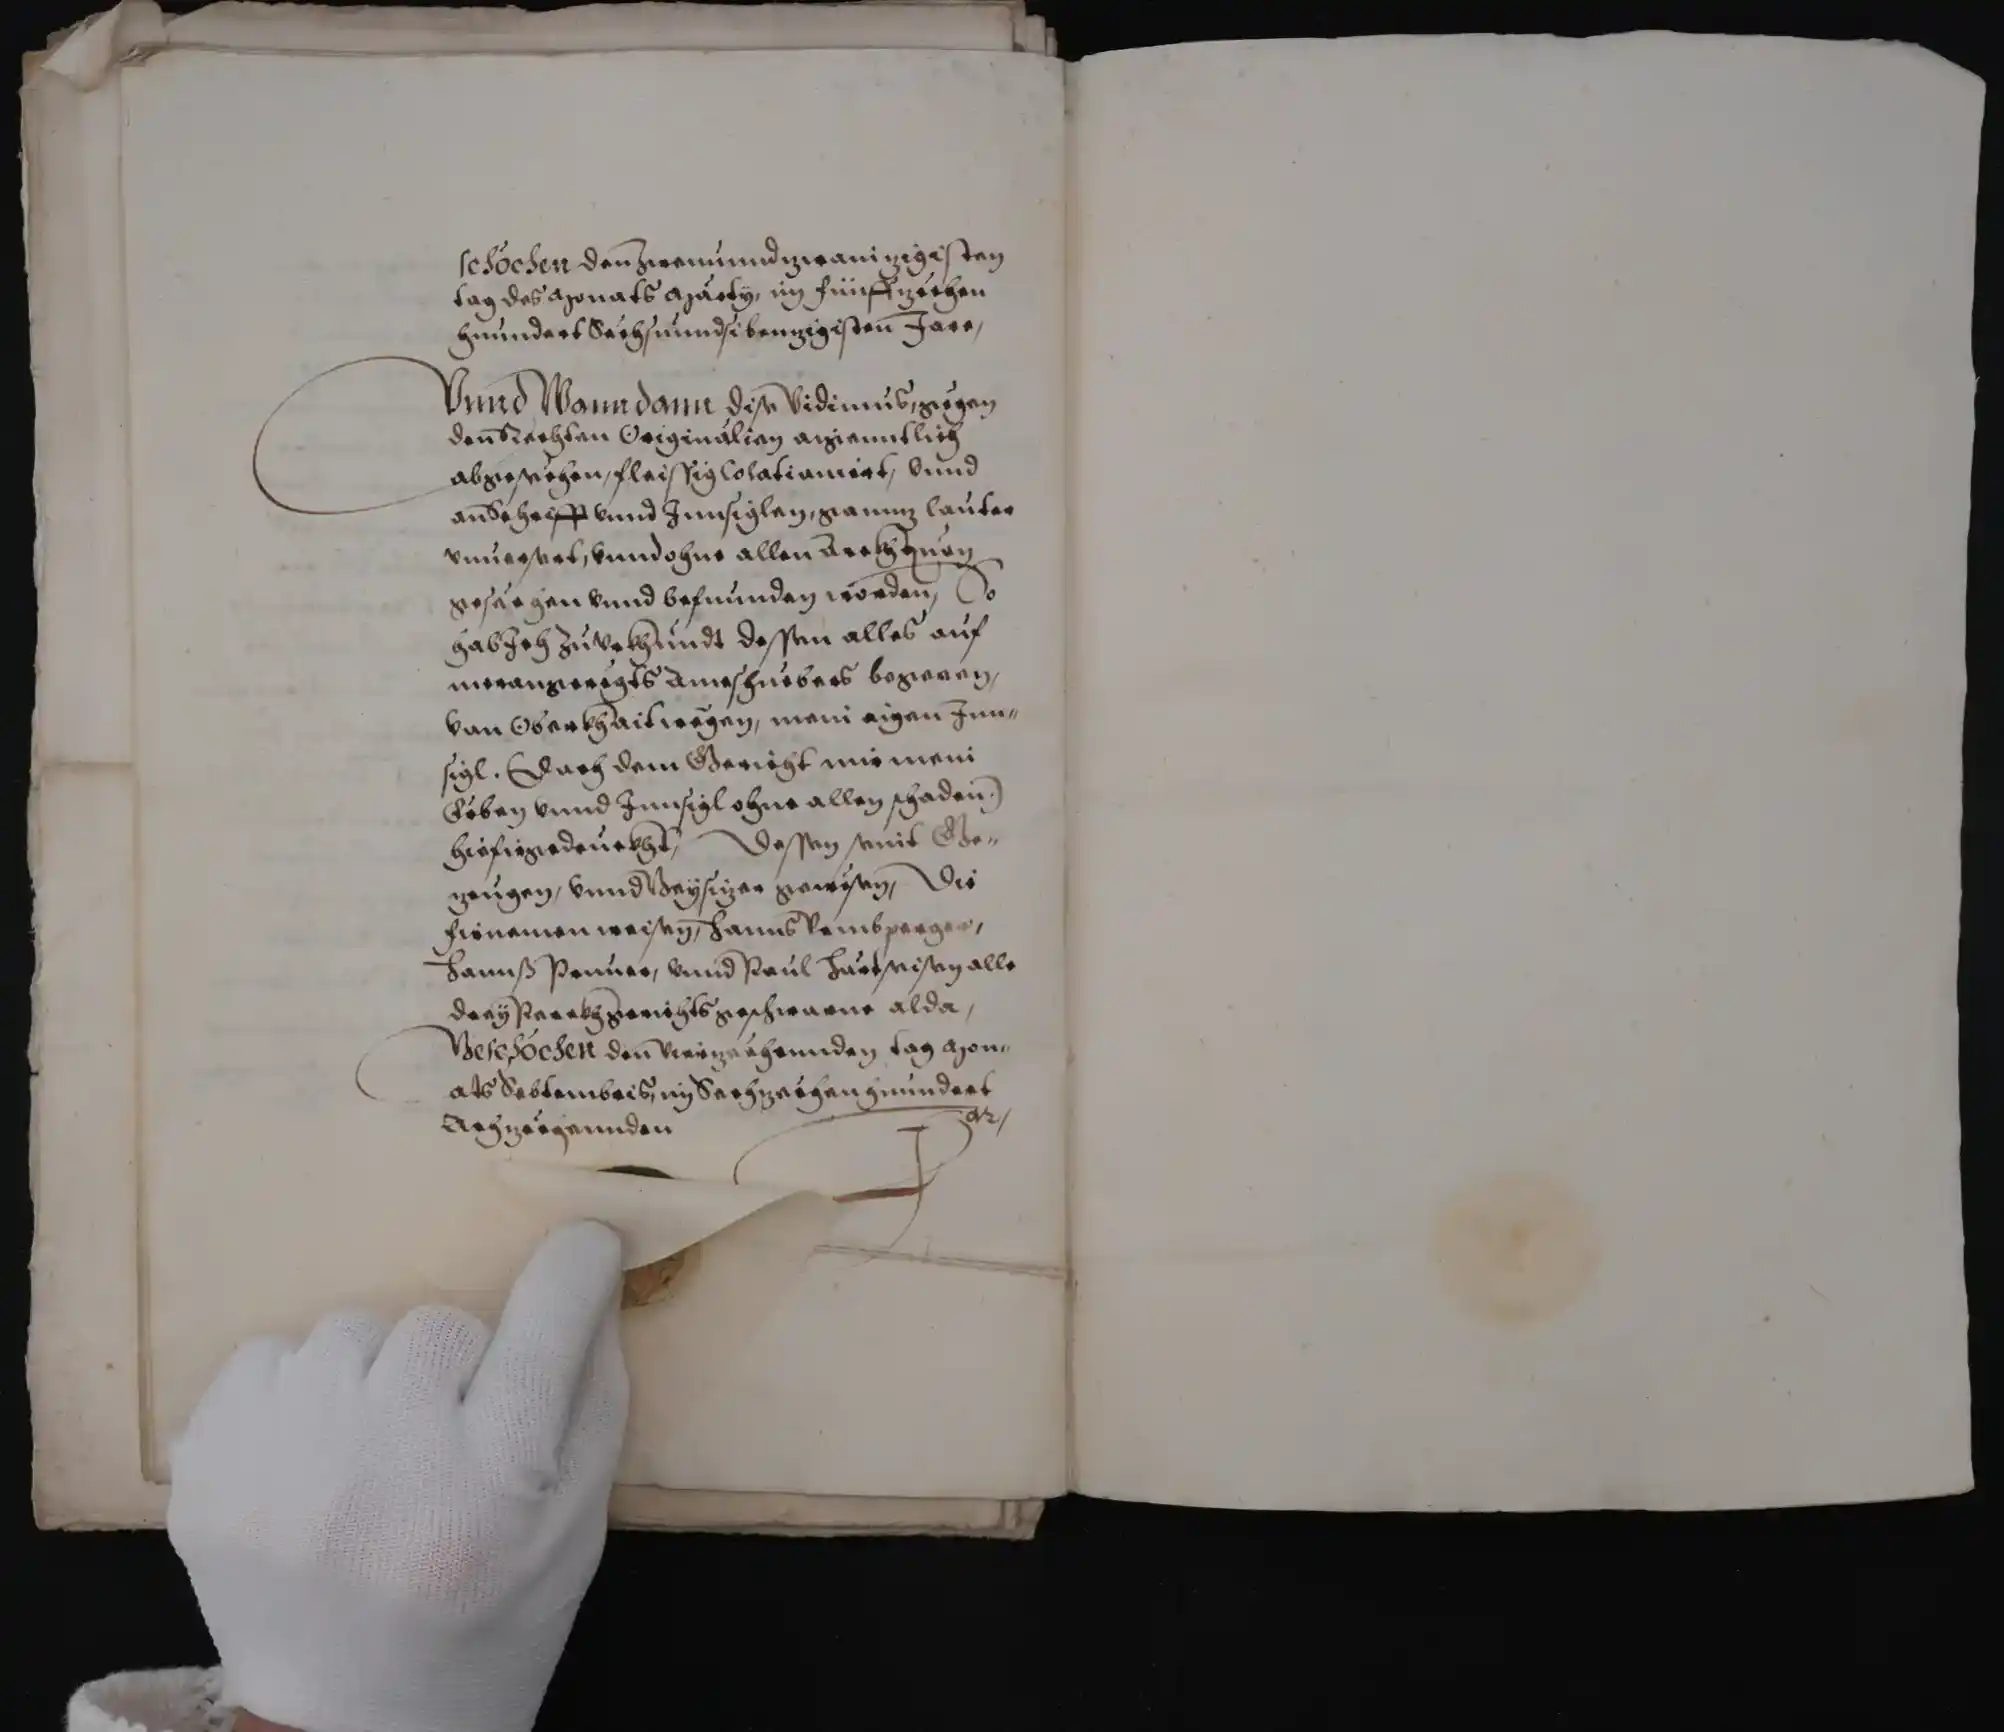 schöchen den Zwenunndzwainzigisten
tag des Monats Marty, im fünffzechen
hunndert Sechsunndsibenzigisten Jare,
Vnnd Wann dann dise Vidimus, gegen
den Rechten Originalien aigenntlich
abgesechen, fleissig Colationiert, vnnd
an Schrifft vnnd Innsiglen, gannz lauter
vnuersert, vnnd ohne allen Arckhquon
gesechen vnnd befunnden worden, So
hab Ich zu vrkhundt dessen alles auf
merangeregts Ambschreibers begeren,
von Oberkhait wegen, mein aigen Inn-
sigl. (Doch dem Gericht mir mein
Erben vnnd Innsigl ohne allen schaden.)
hiefür gedruckht, Dessen seint Ge-
zeugen, vnnd Beysizer gewesen, Die
fürnemen weisen, Hanns
Hannß vnnd Paul alle
drey Perckhgerichtsgeschworne alda,
Beschöchen den Vierzechennden tag Mon-
ats Septembris, im Sechzechenhunndert
Achzechennden Jar,